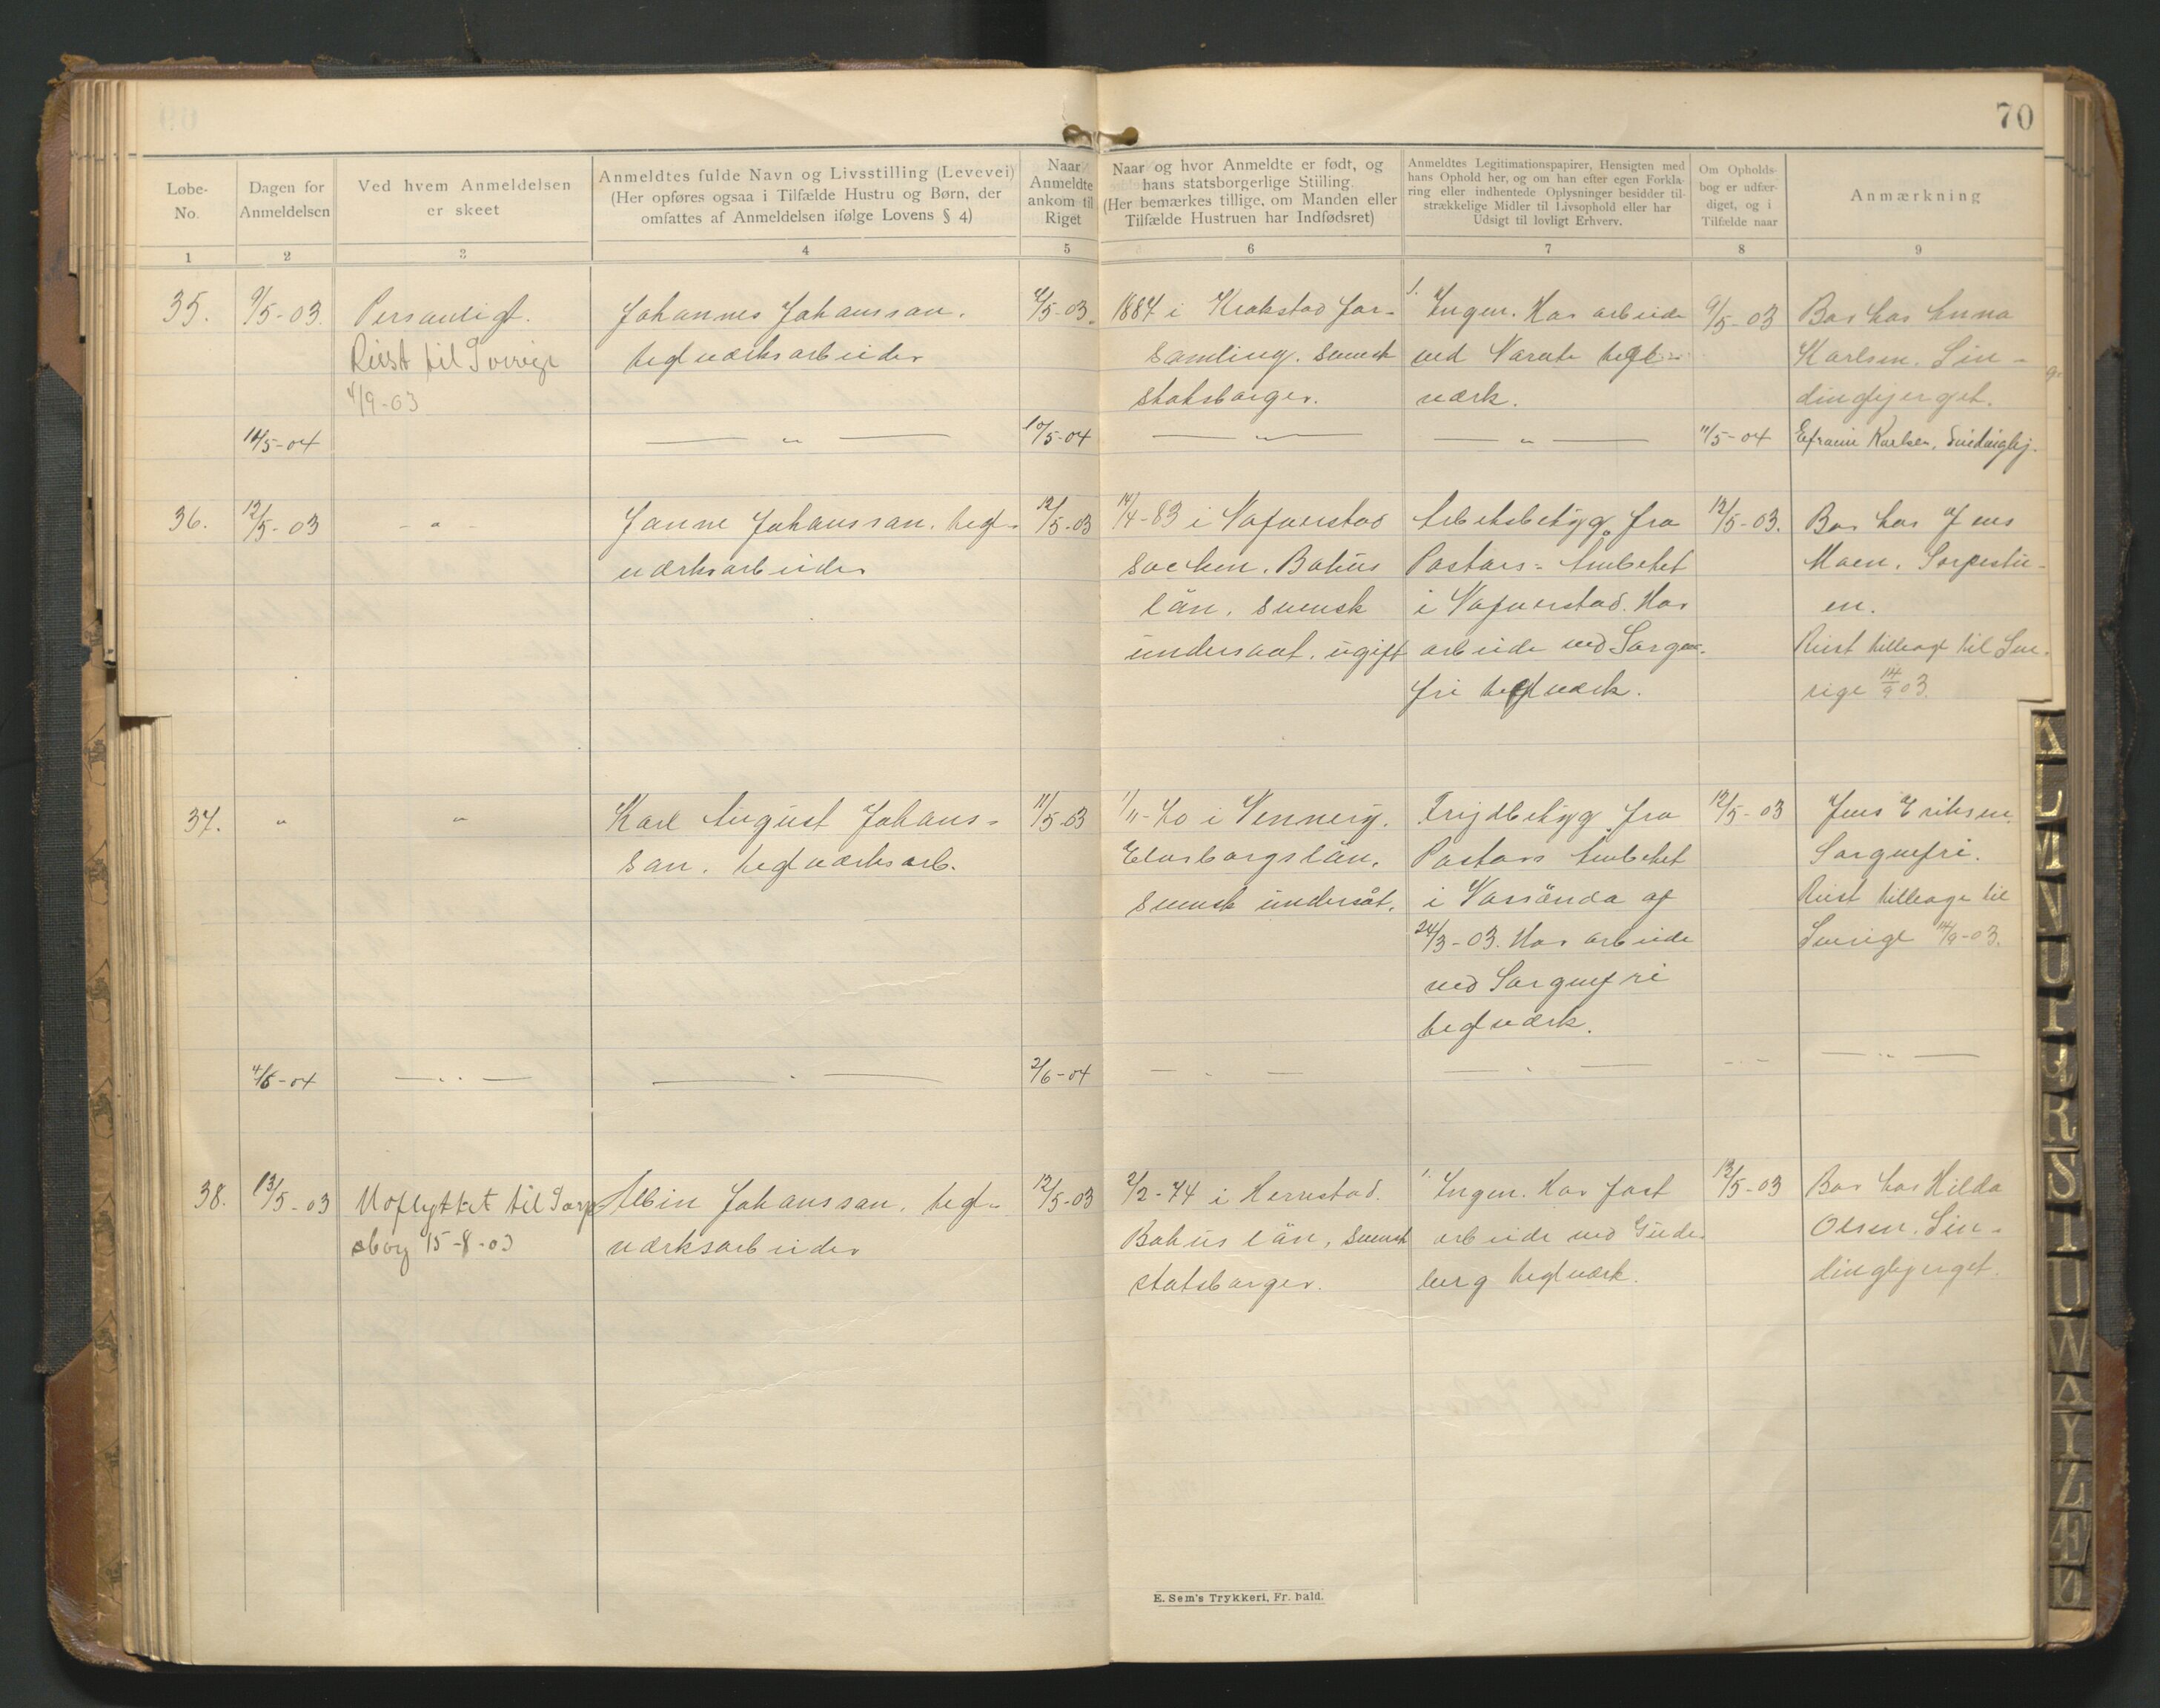 70
Løbe-
No.
Dagen for
Anmeldelsen
Ved hvem Anmeldelsen
er skeet
Anmeldtes fulde Navn og Livsstilling (Levevei)
(Her opføres ogsaa i Tilfælde Hustru og Børn, der
omfattes af Anmeldelsen ifølge Lovens § 4)
Naar
Anmeldte
ankom til
Riget
Naar og hvor Anmeldte er født, og
hans statsborgerlige Stilling.
(Her bemærkes tillige, om Manden eller
Tilfælde Hustruen har Indfødsret)
Anmeldtes Legitimationspapirer, Hensigten med
hans Ophold her, og om han efter egen Forkla-
ring eller indhentede Oplysninger besidder til-
strækkelige Midler til Livsophold eller har
Udsigt til lovligt Erhverv.
Om Opholds-
bog er udfær-
diget, og i
Tilfælde naar
Anmærkning
1 2 3 4 5 6 7 8 9
35.
9/5-03.
Personligt.
Reist til Sverige
4/9-03
Johannes Johansson.
teglværksarbeider
/5-03.
1884 i Krokstad for-
samling. svensk
statsborger.
1. Ingen. Har arbeide
ved tegl-
værk.
9/5-03
Bor hos Anna
Karlsen. Sin-
dingbjerget.
11/5-04
— " —
10/5-04
— " —
— " —
11/5-04
Efraim Karlsen, Sindingbj.
36.
12/5-03
- " -
Janne Johansson. tegl-
værksarbeider
12/5-03
14/4-83 i Nafverstad
socken. Bohus
län. svensk
undersaat. ugift
Arbetsbetyg fra
Pastors-Embetet
i Nafverstad. Har
arbeide ved Sorgen-
fri teglværk.
12/5-03.
Bor hos Jens
Moen. Torpestu-
en.
Reist tilbage til Sve-
rige 14/9 03.
37.
"
"
Karl August Johans-
son. teglværksarb.
11/5-03
1/11-40 i
Elvsborgs län.
svensk undersåt.
Frejdbetyg fra
Pastors Embetet
i Vassända af
24/3-03. Har arbeide
ved Sorgenfri
teglværk.
12/5-03
Jens Eriksen
Sorgenfri.
Reist tilbage til
Sverige 14/9-03.
4/6-04
— " —
— " —
2/6-04
— " —
— " —
- -
— " —
38.
13/5-03
Uoflyttet til Sarps
borg 15-8-03
Albin Johansson. tegl-
værksarbeider
12/5-03
2/2-74 i Herrestad.
Bohus län, svensk
statsborger.
1. Ingen. Har fast
arbeide ved Gude-
berg teglværk.
13/5-03
Bor hos Hilda
Olsen. Sin-
dingbjerget.
E. Sem's Trykkeri, Fr.hald.
L
M
N
O
P
Q
R
S
T
U
W
A
Y
Z
Æ
Ø